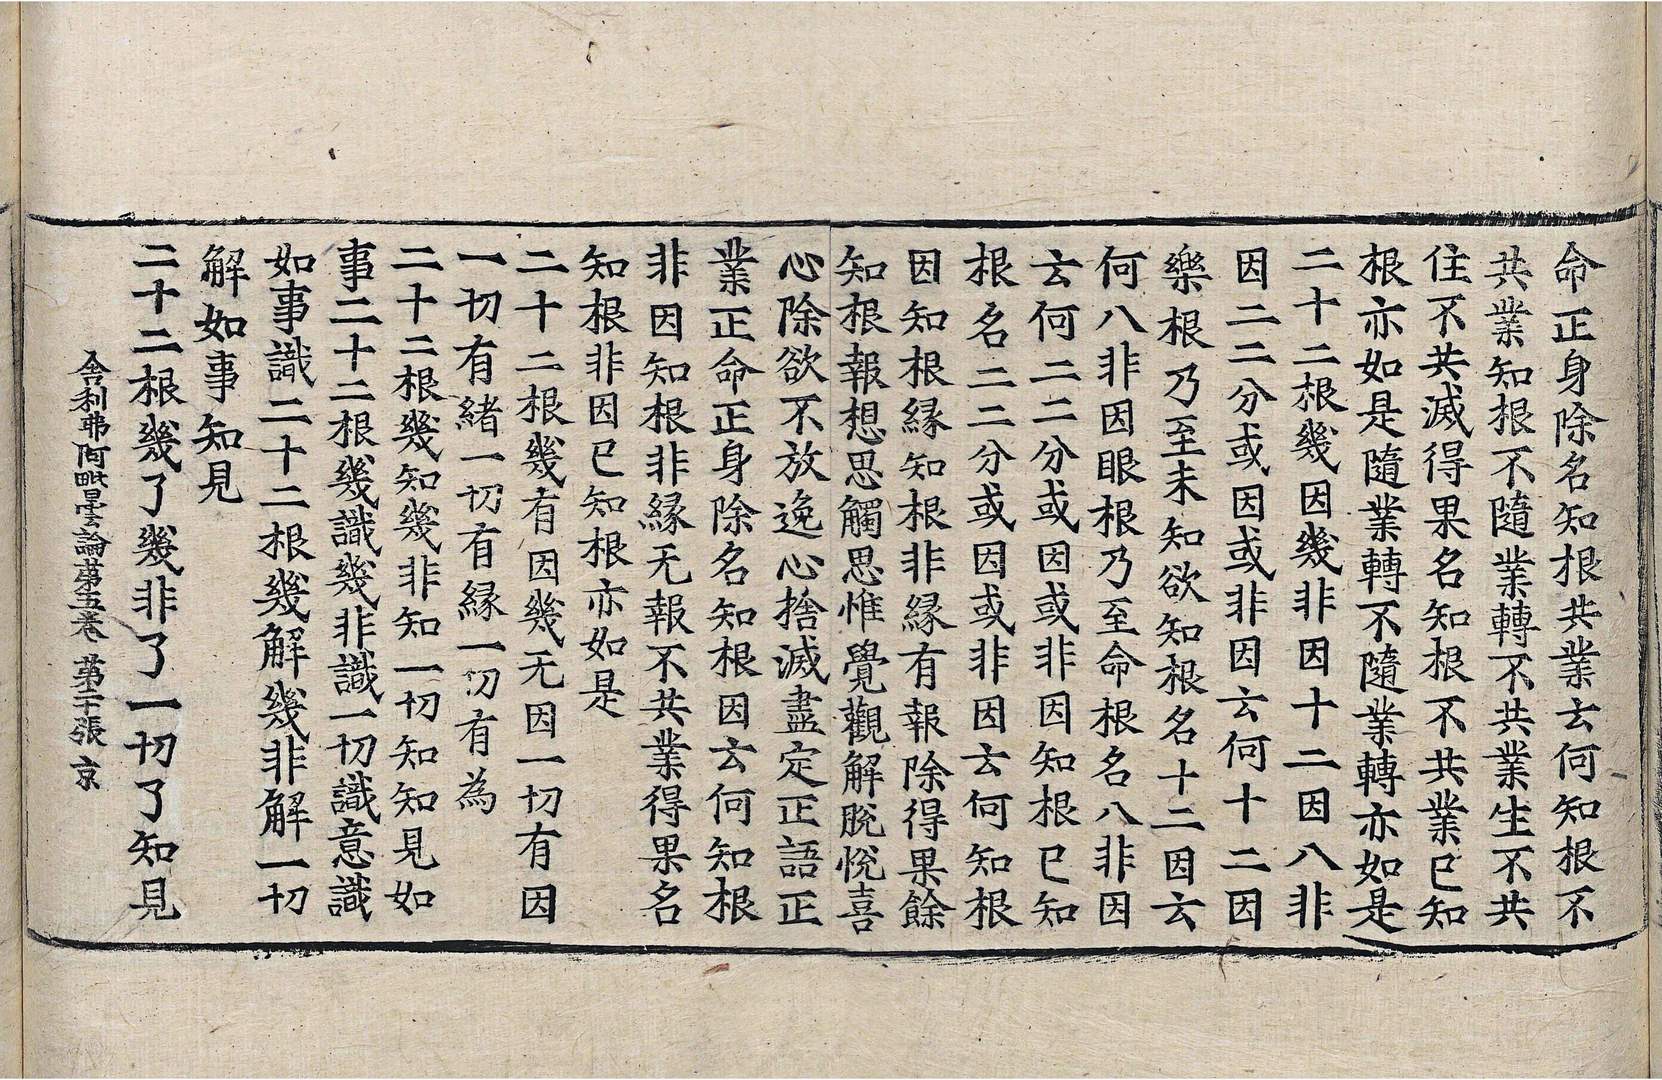 命正身除名知根共業云何知根不
共業知根不隨業轉不共業生不共
住不共滅得果名知根不共業已知
根亦如是隨業轉不隨業轉亦如是
二十二根幾因幾非因十二因八非
因二二分或因或非因云何十二因
樂根乃至未知欲知根名十二因云
何八非因眼根乃至命根名八非因
云何二二分或因或非因知根已知
根名二二分或因或非因云何知根
因知根緣知根非緣有報除得果餘
知根報想思觸思惟覺觀解脫悅喜
心除欲不放逸心捨滅盡定正語正
業正命正身除名知根因云何知根
非因知根非緣无報不共業得果名
知根非因已知根亦如是
二十二根幾有因幾无因一切有因
一切有緒一切有緣一切有為
二十二根幾知幾非知一切知知見如
事二十二根幾識幾非識一切識意識
如事識二十二根幾解幾非解一切
解如事知見
二十二根幾了幾非了一切了知見
舍利弗阿毗曇論第五卷 第二十張 京